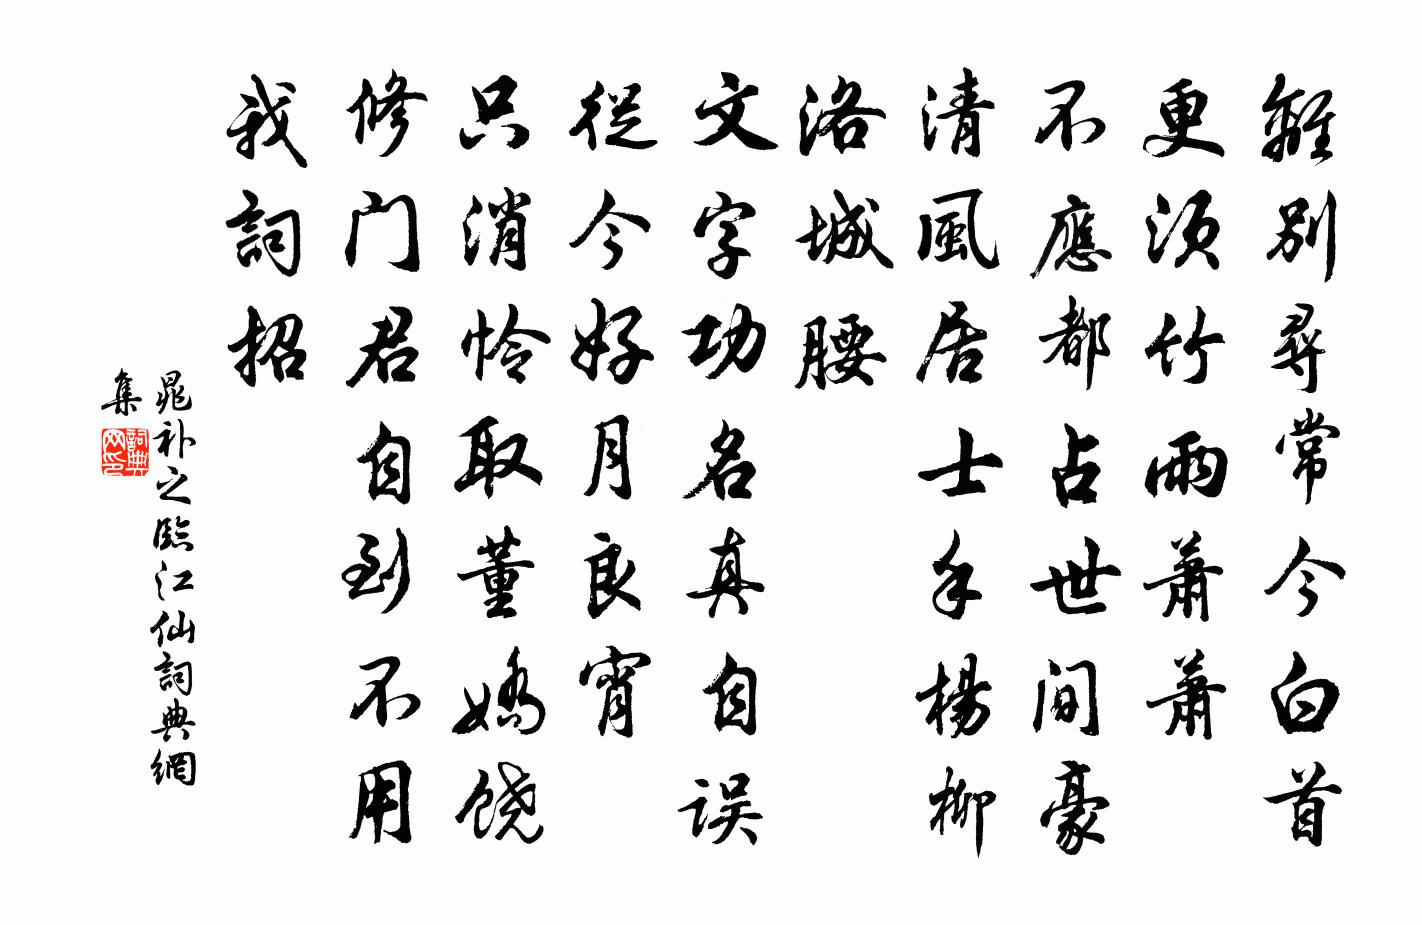 離別尋常今白首
更須竹雨蕭蕭
不應都占世間豪
清風居士手楊柳
洛城腰
文字功名真自误
從今好月良宵
只消怜取董嬌饶
修门君自到不用
我詞招
晁补之臨江仙詞典網
集
詞典
网印